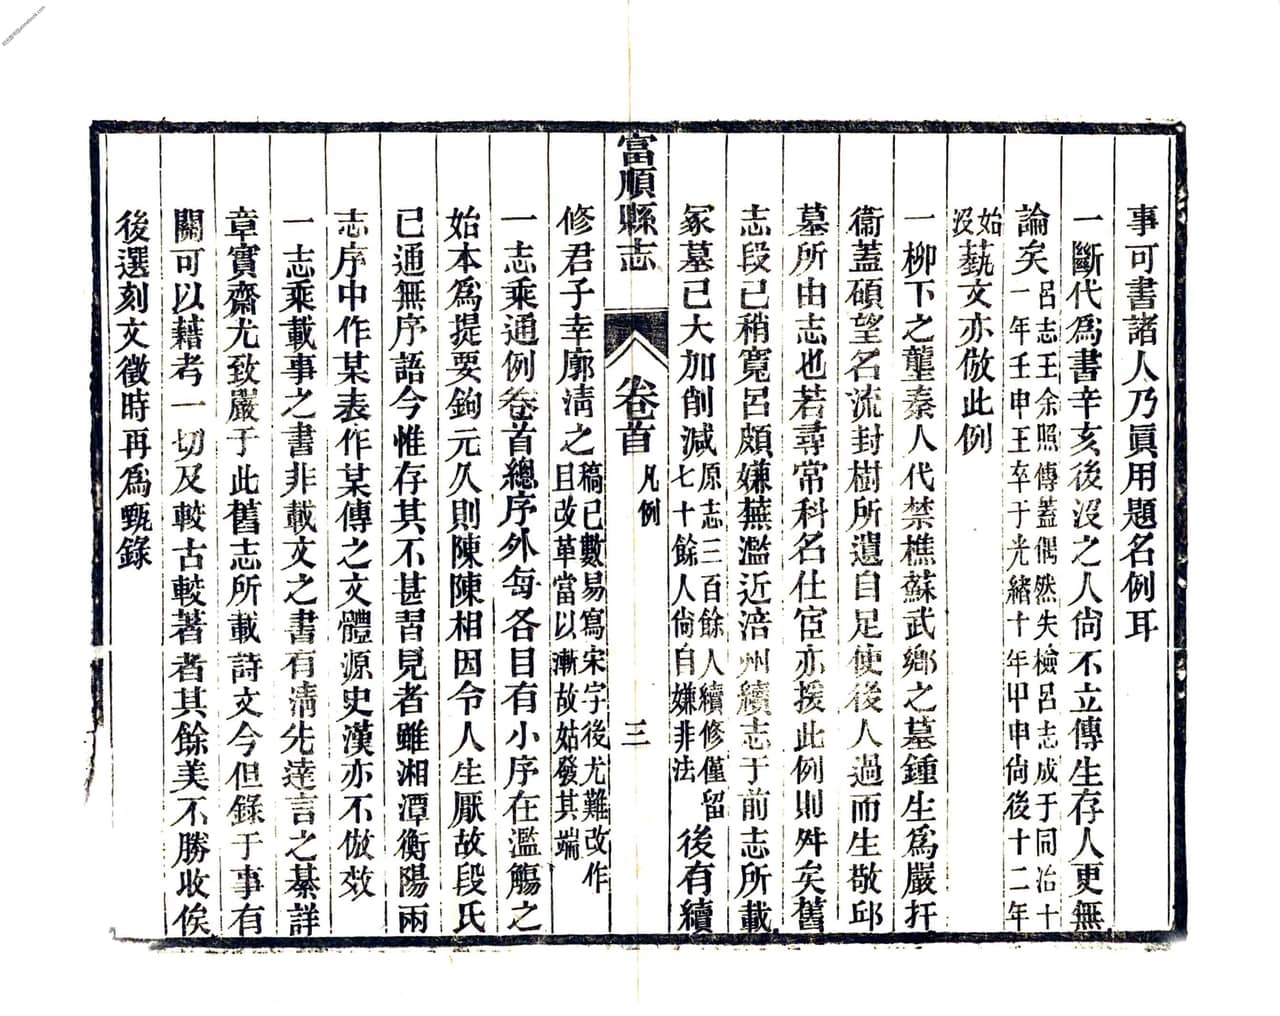 事可書諸人乃眞用題名例耳
一斷代爲書辛亥後沒之人尙不立傳生存人更無
論矣呂志王余照傳蓋偶然失檢呂志成于同治十
一年壬申王卒于光緖十年甲申尙後十二年
始
没藝文亦倣此例
一柳下之壟秦人代禁樵蘇武鄉之墓鍾生爲嚴扞
衞蓋碩望名流封樹所遺自足使後人過而生敬邱
墓所由志也若尋常科名仕宦亦援此例則舛矣舊
志段已稍寬呂頗嫌蕪濫近涪州續志于前志所載
冢墓已大加削減原志三百餘人續修僅留
七十餘人尙自嫌非法後有續
富順縣志 卷首 凡例 三
修君子幸廓淸之稿已數易寫宋字後尤難改作
且改革當以漸故姑發其端
一志乘通例卷首總序外每各目有小序在濫觴之
始本爲提要鉤元久則陳陳相因令人生厭故段氏
已通無序語今惟存其不甚習見者雖湘潭衡陽兩
志序中作某表作某傳之文體源史漢亦不倣效
一志乘載事之書非載文之書有淸先達言之綦詳
章實齋尤致嚴于此舊志所載詩文今但錄于事有
關可以藉考一切及較古較著者其餘美不勝收俟
後選刻文徵時再爲甄錄